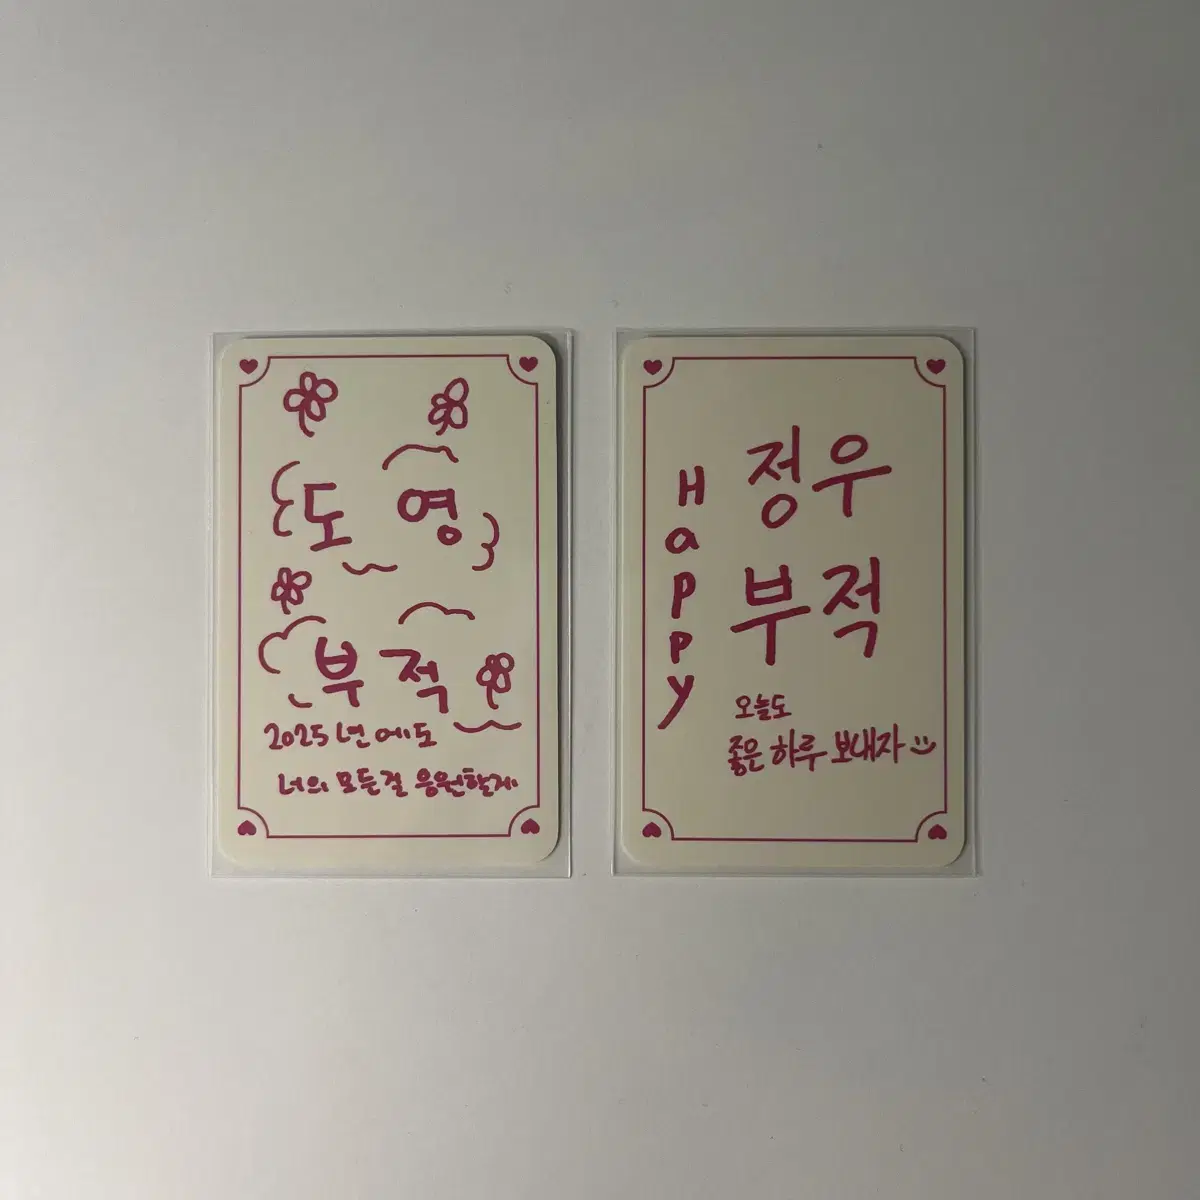 도영
부적
2025년에도
너의 모든걸 응원할게
Happy
정우
부적
오늘도
좋은 하루 보내자